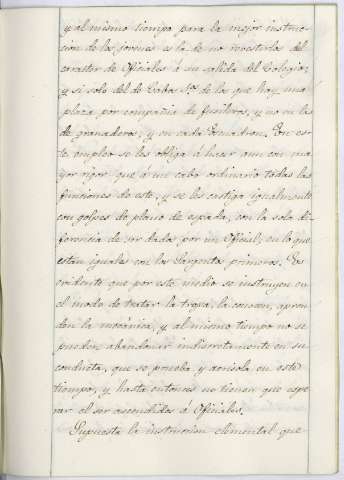 y al mismo tiempo para la mejor instruc-
cion de los jovenes es la de no investirlos del
caracter de Oficiales á su salida del Colegio;
y si solo del de Cabos 1.os de los que hay una
plaza por compañia de fusileros, y no en las
de granaderos, y en cada Esquadron. En es-
te empleo se les obliga á hacer aun con ma
yor rigor que á un cabo ordinario todas las
funciones de este, y se les castiga igualmente
con golpes de plano de espada, con la sola di-
ferencia de ser dados por un Official, en lo que
estan iguales con los Sargentos primeros. Es
evidente que por este medio se instruyen en
el modo de tratar la tropa, la conocen, apren
den la mecánica, y al mismo tiempo no se
pueden abandonar indiscretamente en su
conducta, que se prueba, y acrisola en este
tiempo, y hasta entonces no tienen que espe
rar el ser ascendidos á Oficiales.
Supuesta la instruccion elemental que